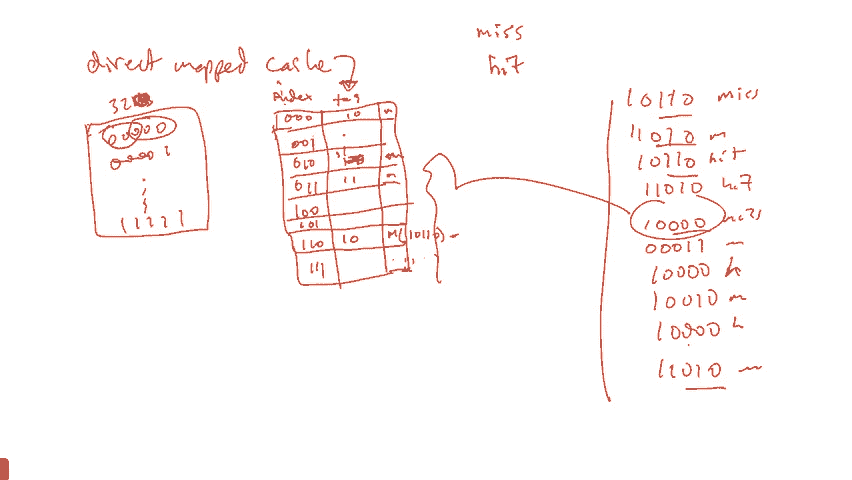 miss
hit
direct mapped cache
32
00000
00001
11111
index tag
000 10 m
001
010 11 m
011 11 m
100
101
110 10 M(10110)
111
10110 miss
11010 m
10110 hit
11010 hit
10000 miss
00011 m
10000 h
10010 m
10000 h
11010 m